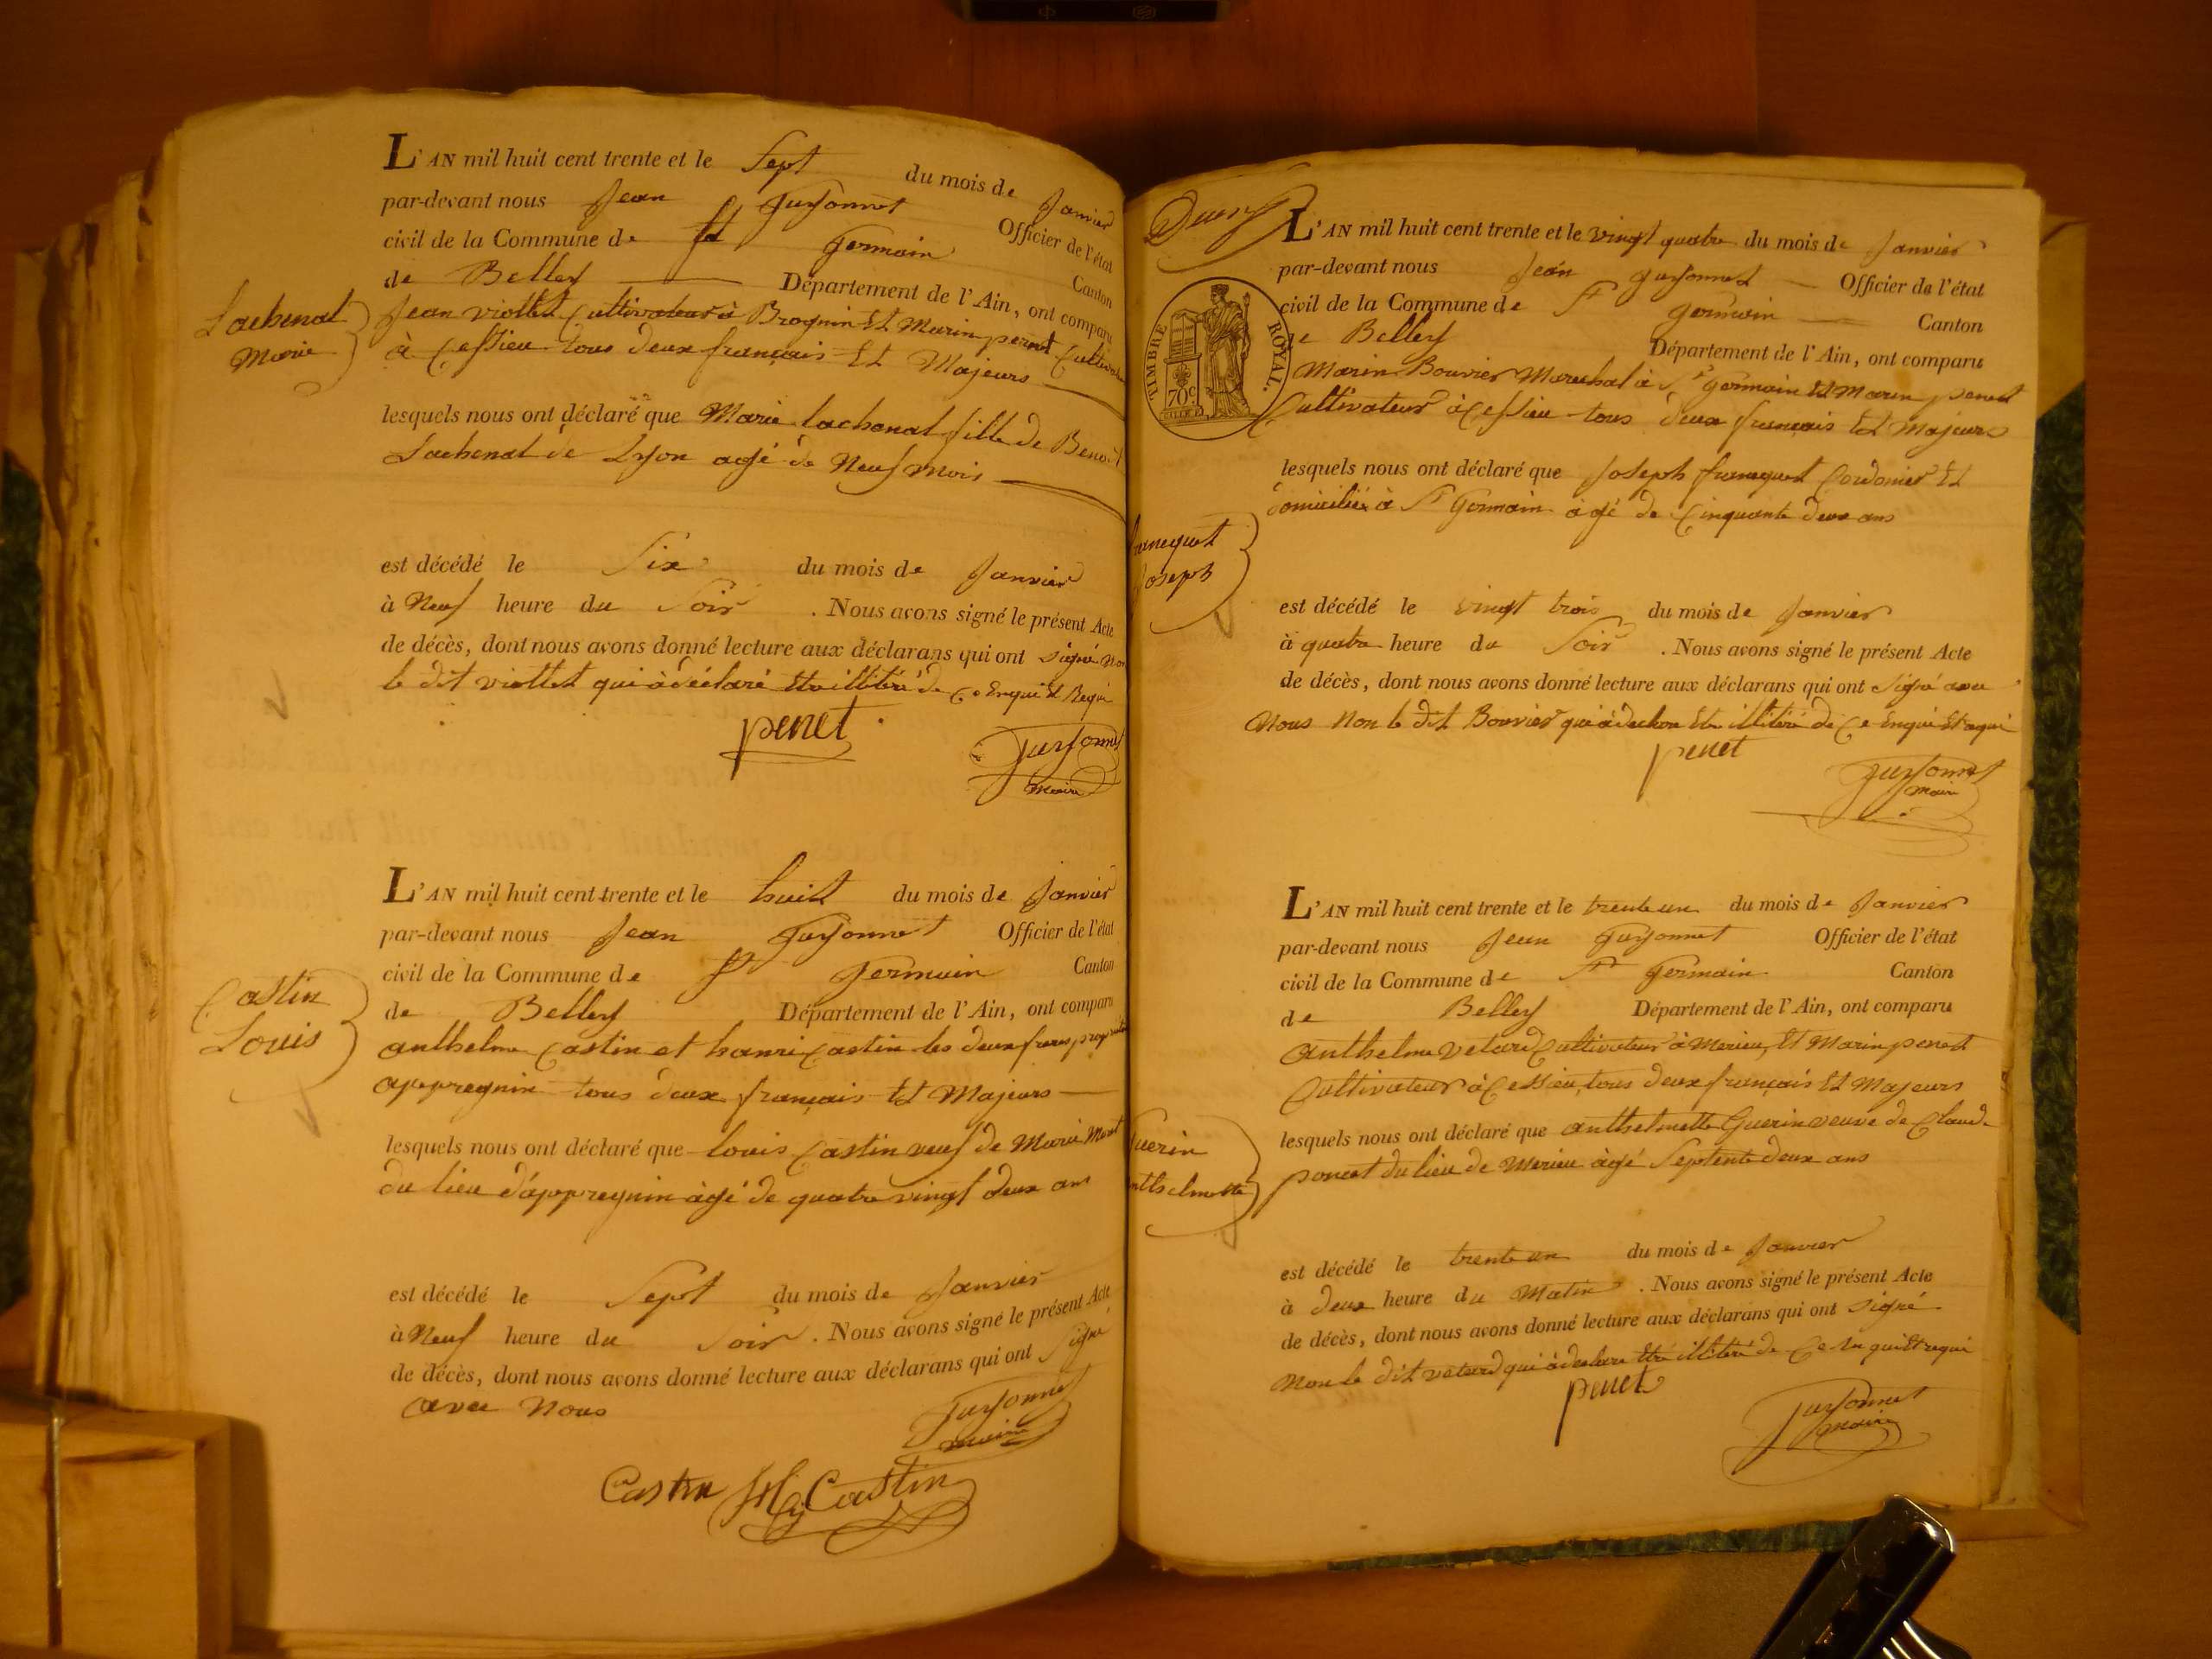 L'AN mil huit cent trente et le Sept du mois de Janvier
par-devant nous Jean Guyonnet Officier de l'état
civil de la Commune de St Germain Canton
de Belley Département de l'Ain, ont comparu
Lachenal
Marie
Jean viollet Cultivateur à Brognin Et Marin penet Cultivateur
à Cessieu tous deux français Et Majeurs
lesquels nous ont déclaré que Marie lachenal fille de Benoit
Lachenal de Lyon agé de Neuf Mois
est décédé le Six du mois de Janvier
à Neuf heure du Soir . Nous avons signé le présent Acte
de décès, dont nous avons donné lecture aux déclarans qui ont signé Non
le dit viollet qui à déclaré Etre illitéré de Ce Enqui Et Requi
penet
Guyonnet
maire
L'AN mil huit cent trente et le huit du mois de Janvier
par-devant nous Jean Guyonnet Officier de l'état
civil de la Commune de St Germain Canton
de Belley Département de l'Ain, ont comparu
Castin
Louis
anthelme Castin et hanri Castin les deux freres
appregnin tous deux français Et Majeurs
lesquels nous ont déclaré que louis Castin veuf de Marie
du lieu d'appregnin àgé de quatre vingt deux ans
est décédé le Sept du mois de Janvier
à Neuf heure du Soir . Nous avons signé le présent Acte
de décès, dont nous avons donné lecture aux déclarans qui ont Signé
avec Nous
Guyonnet
maire
Castin Hy Castin
L'AN mil huit cent trente et le vingt quatre du mois de Janvier
par-devant nous Jean Guyonnet Officier de l'état
civil de la Commune de St Germain Canton
de Belley Département de l'Ain, ont comparu
TIMBRE ROYAL.
70 c.
Marin Bouvier Marechal à St Germain Et Marin penet
Cultivateur à Cessieu tous deux français Et Majeurs
lesquels nous ont déclaré que Joseph francquet Cordonier Et
domicilié à St Germain àgé de Cinquante deux ans
francquet
Joseph
est décédé le vingt trois du mois de Janvier
à quatre heure du Soir . Nous avons signé le présent Acte
de décès, dont nous avons donné lecture aux déclarans qui ont Signé avec
Nous Non le dit Bouvier qui à declare Etre illitéré de Ce Enqui Et requi
penet
Guyonnet
maire
L'AN mil huit cent trente et le trente un du mois de Janvier
par-devant nous Jean Guyonnet Officier de l'état
civil de la Commune de St Germain Canton
de Belley Département de l'Ain, ont comparu
Anthelme vetard Cultivateur à Merieu, Et Marin penet
Cultivateur à Cessieu, tous deux français Et Majeurs
lesquels nous ont déclaré que anthelmette Guerin veuve de Claude
poncet du lieu de Merieu àgé Septente deux ans
Guerin
Anthelmette
est décédé le trente un du mois de Janvier
à deux heure du Matin . Nous avons signé le présent Acte
de décès, dont nous avons donné lecture aux déclarans qui ont Signé
Non le dit vetard qui à declare Etre illitéré de Ce En qui Et requi
penet
Guyonnet
maire